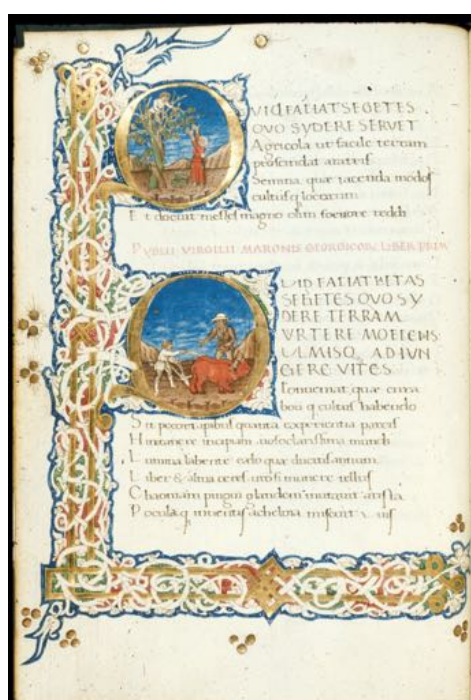 QVID FACIAT SEGETES
QVO SYDERE SERVET
Agricola ut facile terram
proscindat aratris
Semina quæ iacienda modos
cultusq locorum
Et docuit messes magno olim foenore reddi
PVBLII VIRGILII MARONIS GEORGICON LIBER PRIM
QVID FACIAT LÆTAS
SEGETES QVO SY
DERE TERRAM
VERTERE MOECENAS
ULMISQ ADIUN
GERE VITES
Conueniat quæ cura
boū q cultus habendo
Sit pecori apibus quanta experientia parcis
Hinc canere incipiam uos o clarissima mundi
Lumina labentē cælo quæ ducitis annum
Liber & alma ceres uestro si munere tellus
Chaoniam pingui glandem mutauit arista
Poculaq inuentis acheloia miscuit uuis